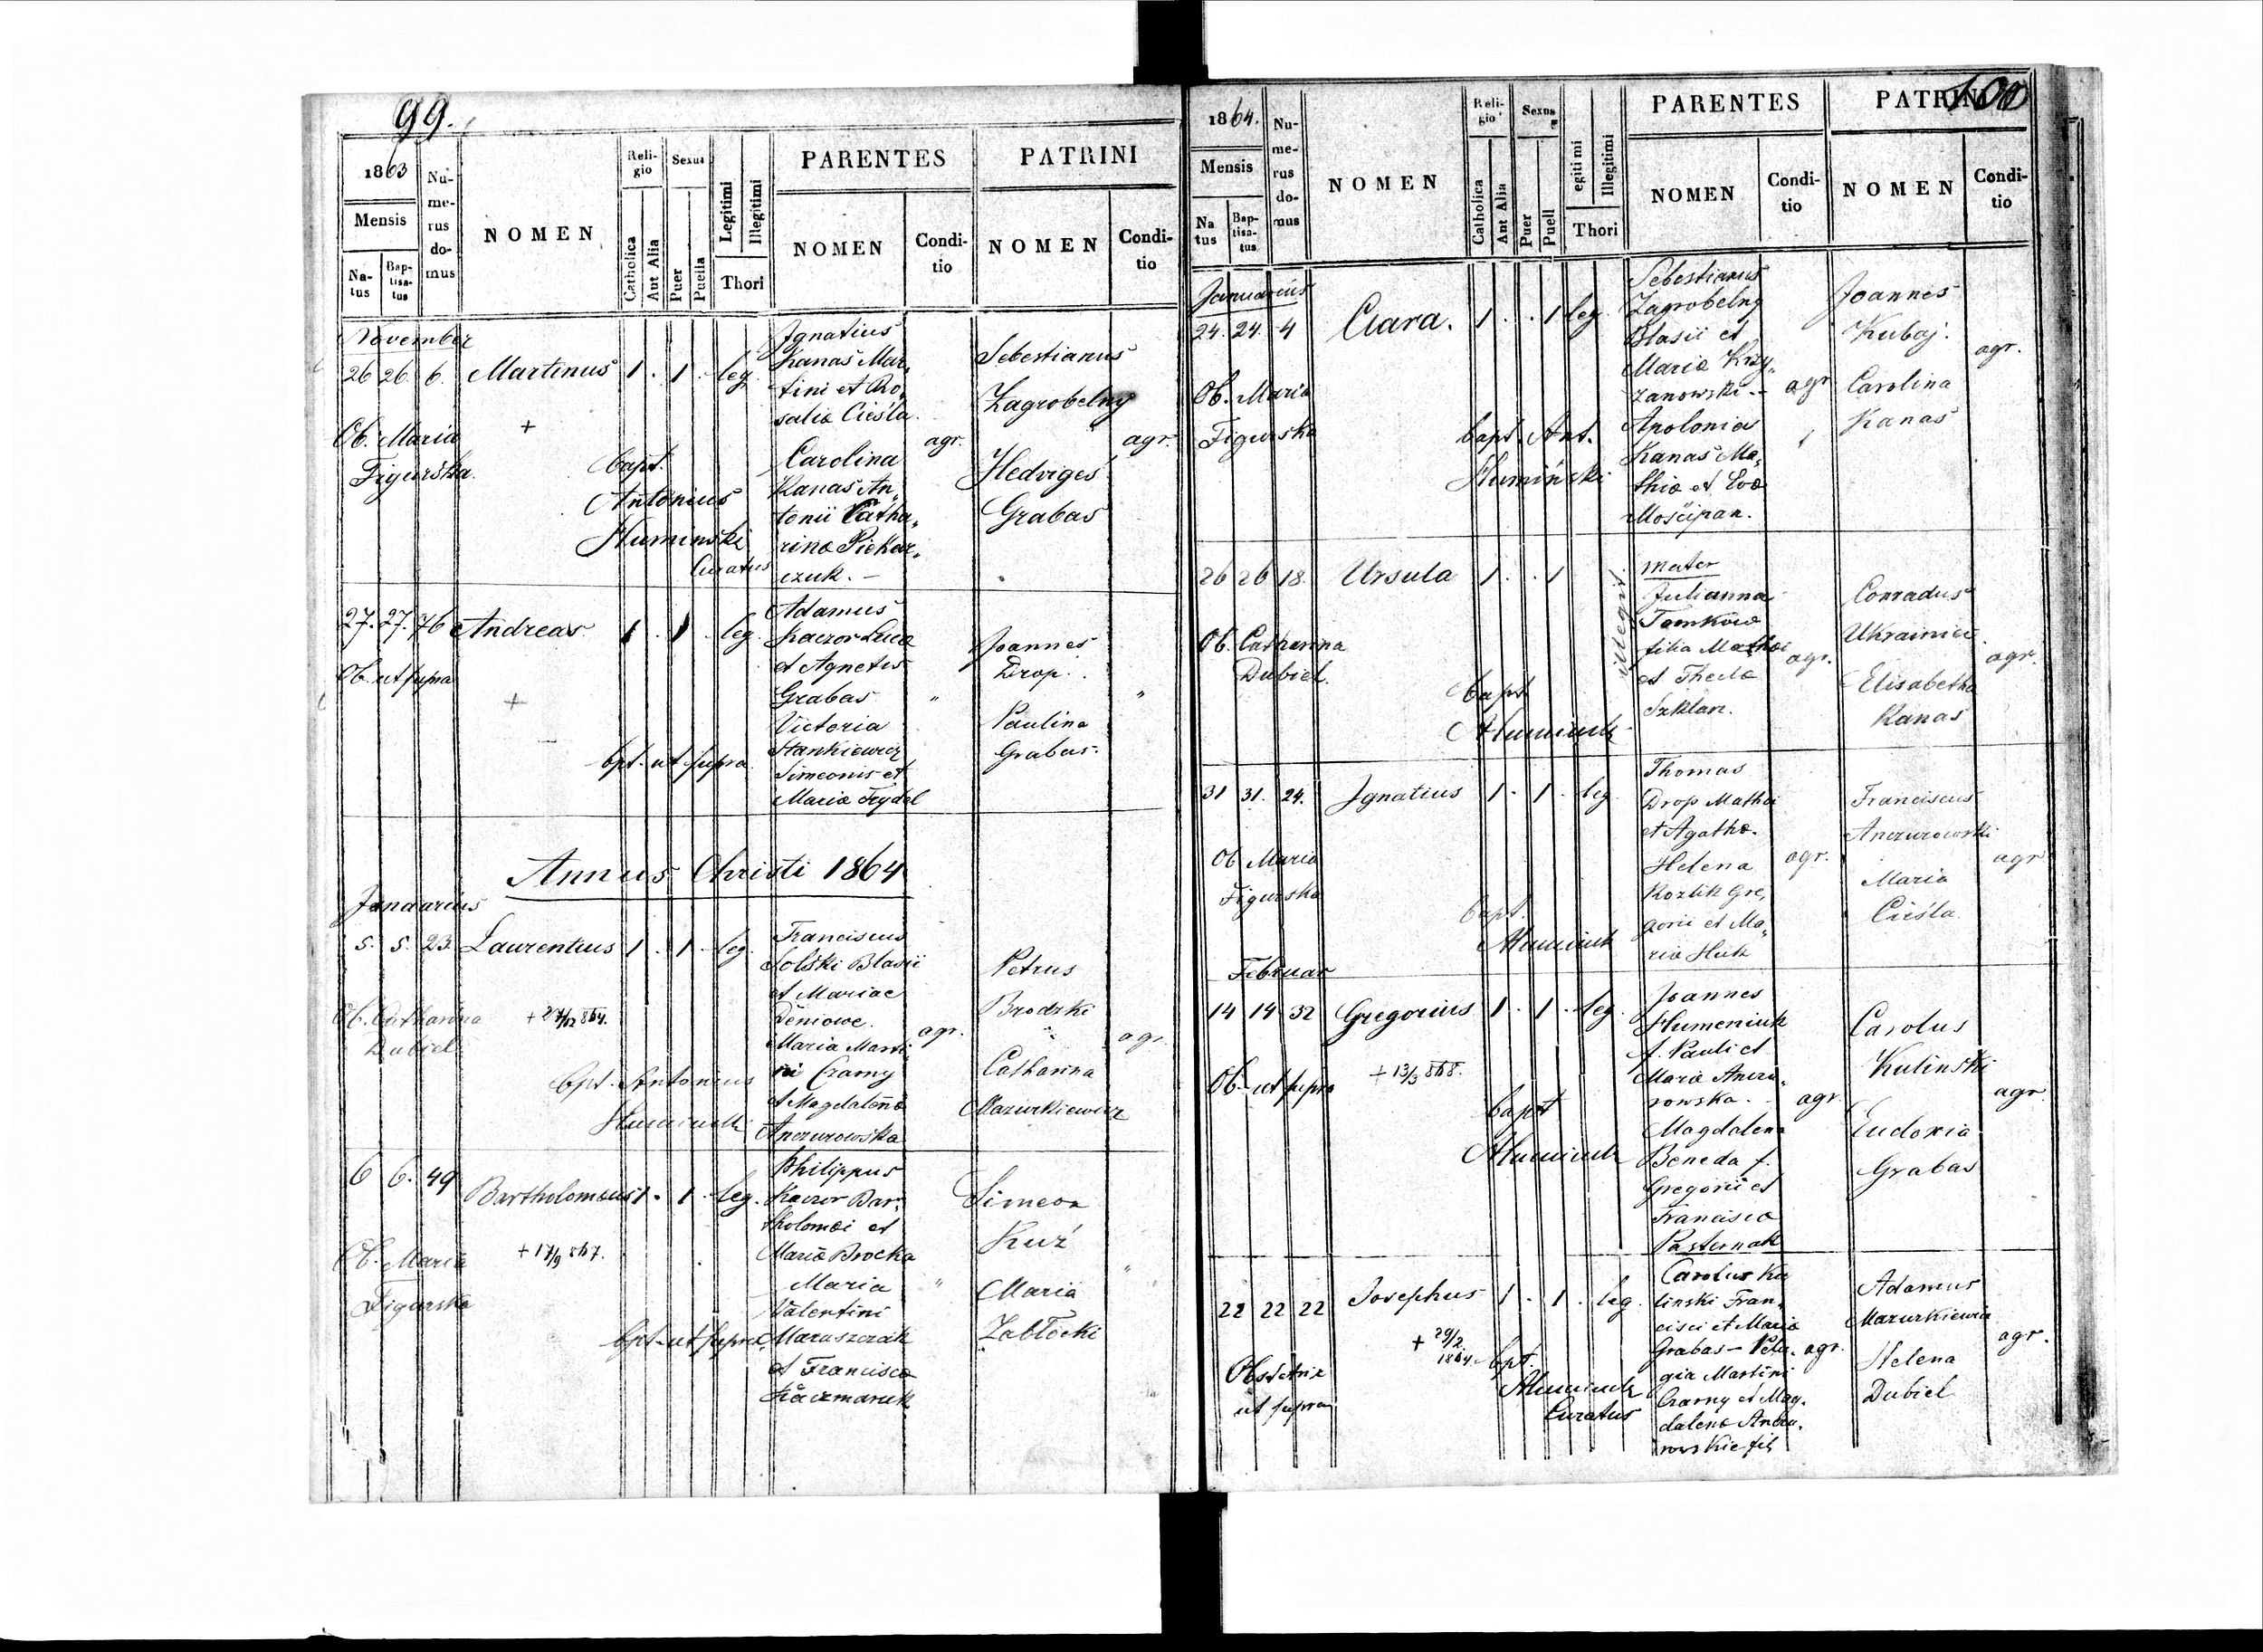 99.
1863
Mensis
Na-
tus
Bap-
tisa-
tus
Nu-
me-
rus
do-
mus
NOMEN
Reli-
gio
Catholica
Aut Alia
Sexus
Puer
Puella
Legitimi
Illegitimi
Thori
PARENTES
NOMEN
Condi-
tio
PATRINI
NOMEN
Condi-
tio
November
26 26. 6. Martinus 1 . 1 . leg.
Ob. Maria
Figurska
+
bapt.
Antonius
Huminski
Curatus
Ignatius
Kanas Mar,
tini et Ro,
salia Cieśla.
Carolina
Kanas An,
tonii Catha,
rina Piekar,
czuk. -
agr.
Sebestianus
Zagrobelny
Hedviges
Grabas
agr.
27. 27. 76 Andreas 1 . 1 . leg.
Ob. ut supra
+
bpt. ut supra
Adamus
Kaczor Luca
et Agnetis
Grabas
Victoria
Stankiewicz
Simeonis et
Maria Frydel
"
Joannes
Drop.
Paulina
Grabas
"
Annus Christi 1864
Januarius
5. 5. 23. Laurentius 1 . 1 . leg.
Ob. Catharina
Dubiel
+ 27/12 864.
bpt. Antonius
Franciscus
Solski Blasii
et Mariae
Deniowe.
Maria Marti
ni Czarny
et Magdalena
Anczurowska
agr.
Petrus
Brodzki
Catharina
Mazurkiewicz
agr.
6 6. 49 Bartholomaeus 1 . 1 . leg.
Ob. Maria
Figurska
+ 17/9 867.
bpt. ut supra
Philippus
Kaczor Bar,
tholomaei et
Maria Brocka
Maria
Valentini
Maruszczak
et Francisca
Kaczmaruk
"
Simeon
Kuź
Maria
Zabłocki
"
100
1864.
Mensis
Na
tus
Bap-
tisa-
tus
Nu-
me-
rus
do-
mus
NOMEN
Reli-
gio
Catholica
Aut Alia
Sexus
Puer
Puell
egiti mi
Illegitimi
Thori
PARENTES
NOMEN
Condi-
tio
PATRINI
NOMEN
Condi-
tio
Januarius
24. 24. 4 Clara. 1 . . 1 leg.
Ob. Maria
Figurska
bapt. Ant.
Humiński
Sebestianus
Zagrobelny
Blasii et
Maria Krzy,
zanowski -
Apolonia
Kanas Ma,
thia et Eva
Mościpan.
agr
Joannes
Kubaj.
Carolina
Kanas
agr.
26 26 18. Ursula 1 . . 1
illegit.
Ob. Catharina
Dubiel.
bapt
mater
Julianna
Tomkow
filia Mathaei
et Thecla
Szklarz.
agr.
Conradus
Ukrainiec
Elisabetha
Kanas
agr.
31 31. 24. Ignatius 1 . 1 . leg
Ob Maria
Figurska
bapt.
Thomas
Drop Mathei
et Agatha.
Helena
Kozlik Gre,
gorii et Ma,
ria Huk
agr.
Franciscus
Anczurowski
Maria
Cieśla
agr
Februar
14 14 32 Gregorius 1 . 1 . leg
Ob. ut supra
+ 13/3 868.
bapt
Joannes
Humeniuk
f. Pauli et
Maria Anczu,
rowska.
Magdalena
Beneda f.
Gregorii et
Francisca
Pasternak
agr
Carolus
Kulinski
Eudoxia
Grabas
agr
22 22 22 Josephus 1 . 1 . leg.
Obstetrix
ut supra
+ 29/2.
1864.
bpt.
Curatus
Carolus Ku
linski Fran,
cisci et Maria
Grabas - Pela,
gia Martini
Czarny et Mag,
dalena Anczu,
rowskie fil,
agr.
Adamus
Mazurkiewicz
Helena
Dubiel
agr.